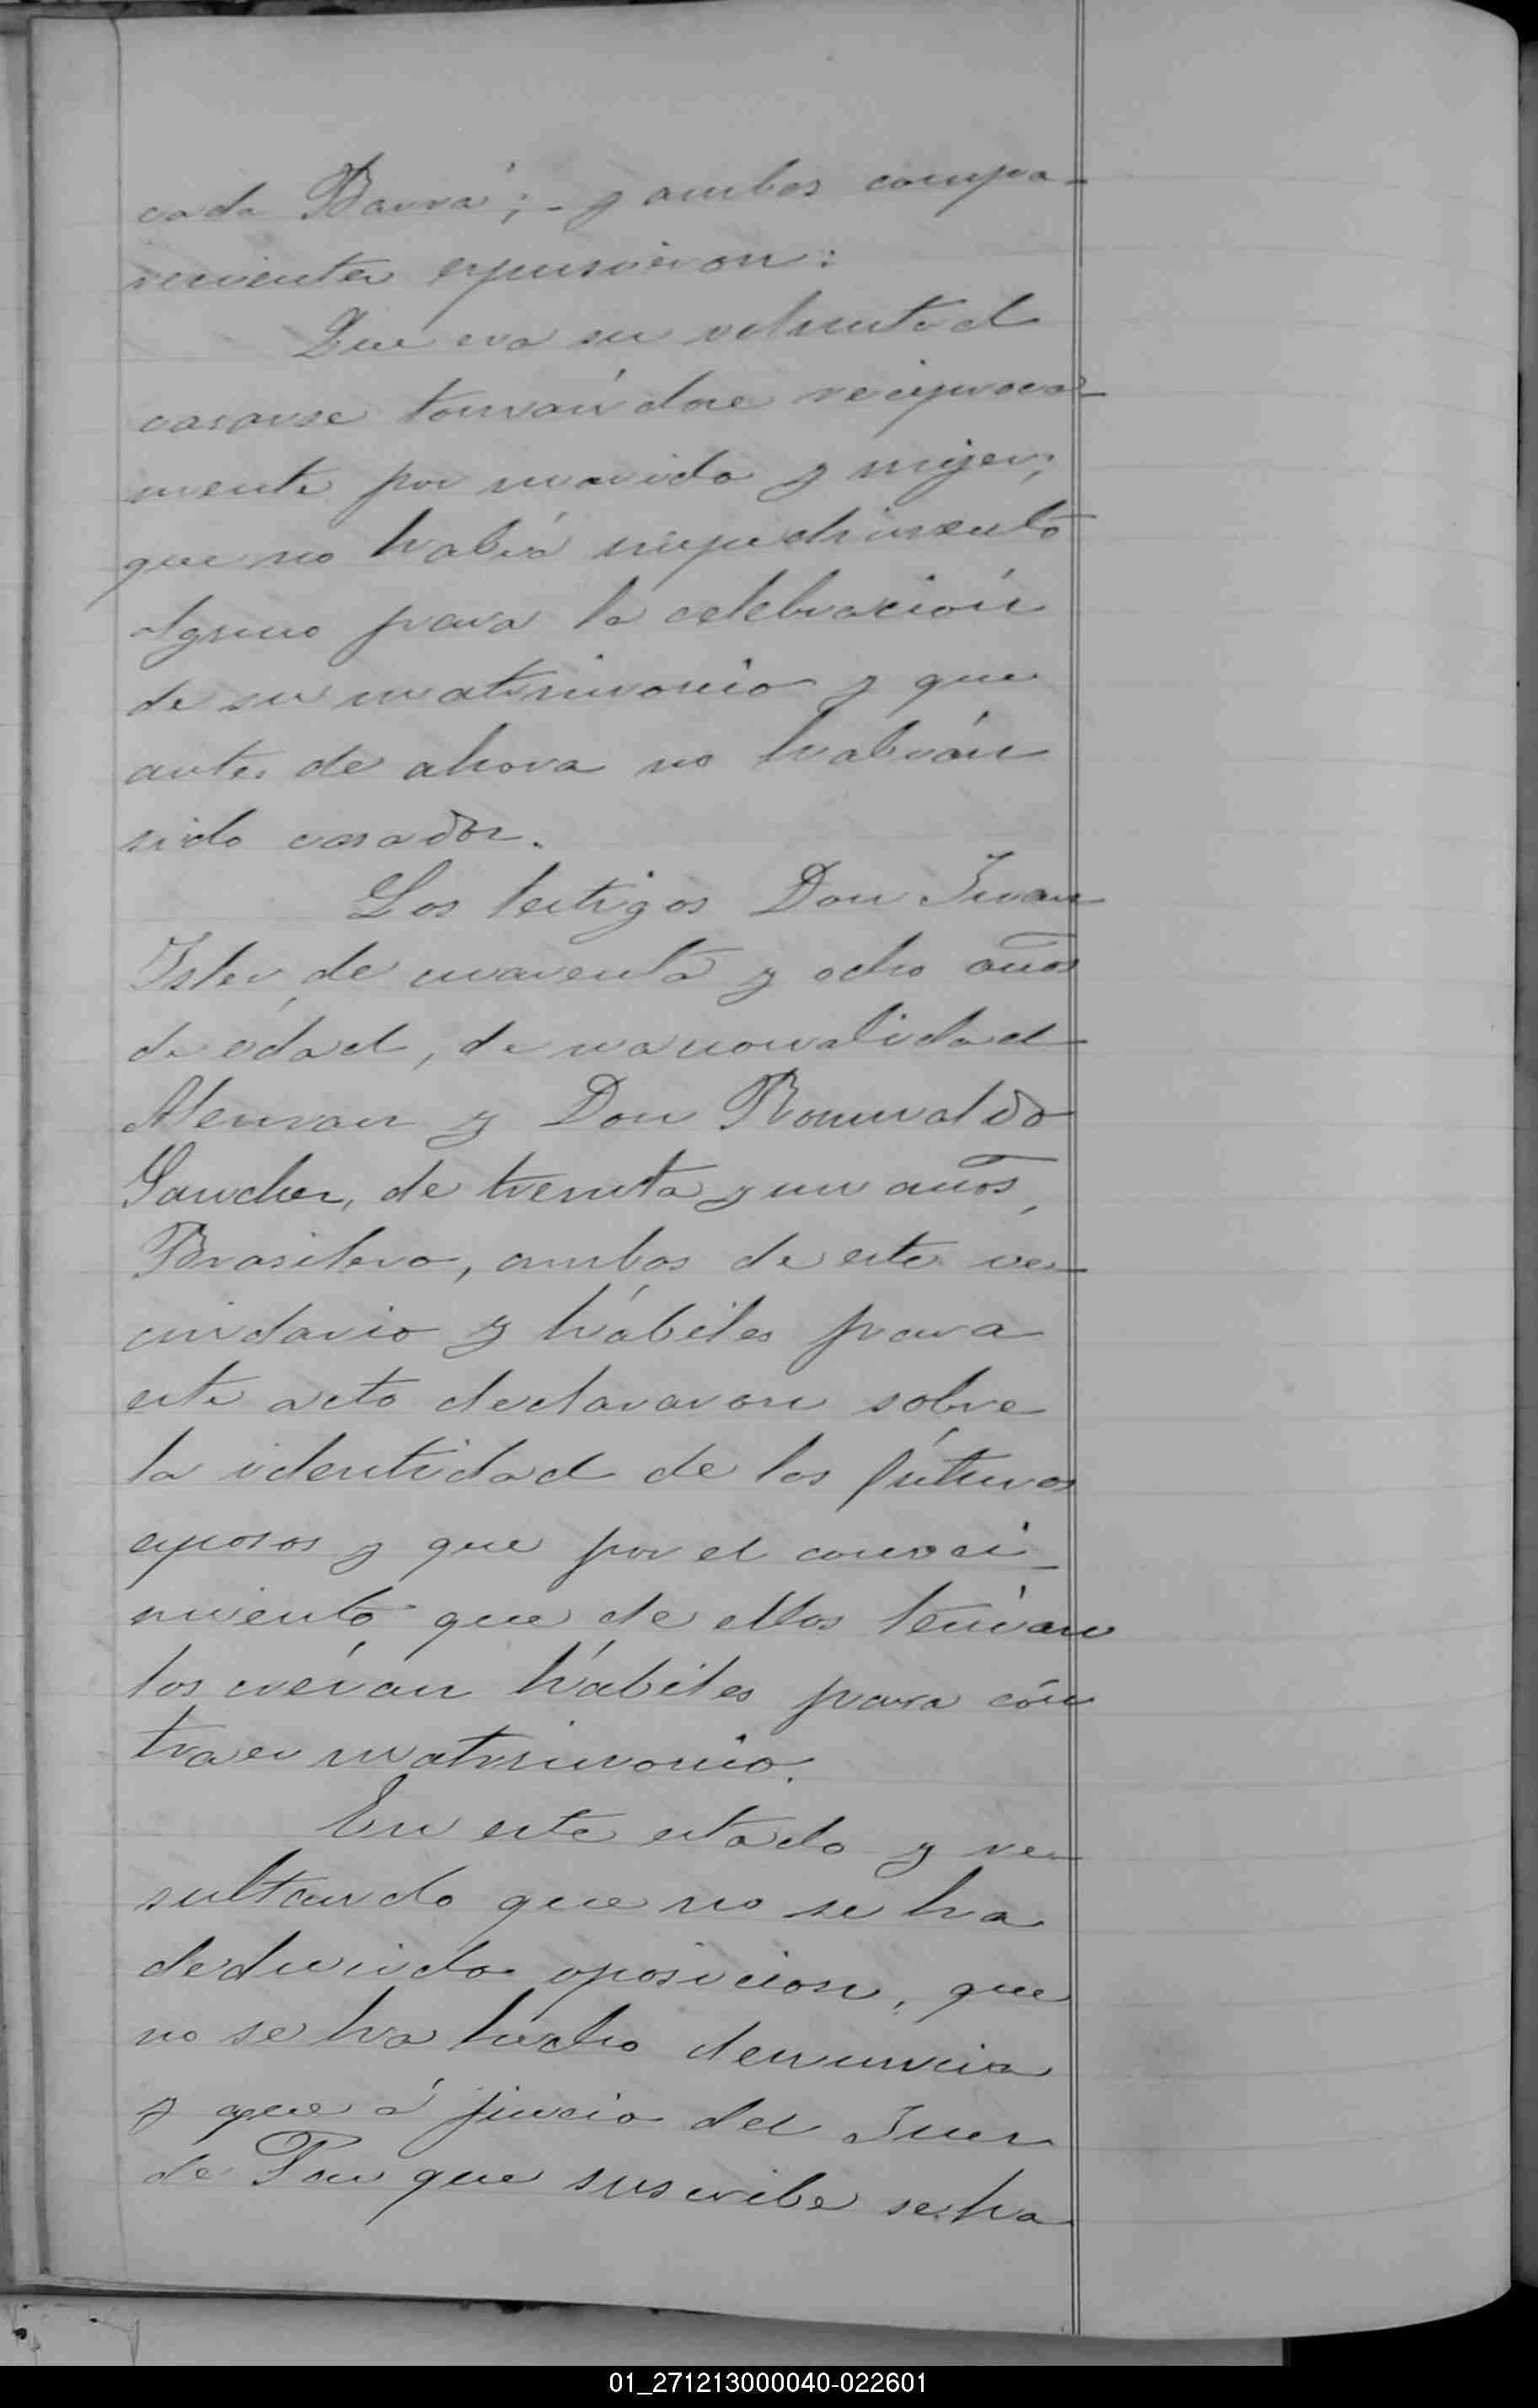 cada Barra; - y ambos compa-
recientes expusieron:
Que era su voluntad
casarse tomándose reciproca-
mente por marido y mujer;
que no habia impedimento
alguno para la celebración
de su matrimonio y que
antes de ahora no habián
sido casados.
Los testigos Don Juan
Isler, de cuarenta y ocho años
de edad, de nacionalidad
Aleman y Don Romualdo
Sanchez, de treinta y un años,
Brasilero, ambos de este ve-
cindario y hábiles para
este acto declararon sobre
la identidad de los fúturos
esposos y que por el conoci-
miento que de ellos tenian
los creián hábiles para con
traer matrimonio.
En este estado y re-
sultando que no se ha
deducido oposicion, que
no se ha hecho denuncia
y que á juicio del Juez
de Paz que suscribe se ha
01_271213000040-022601